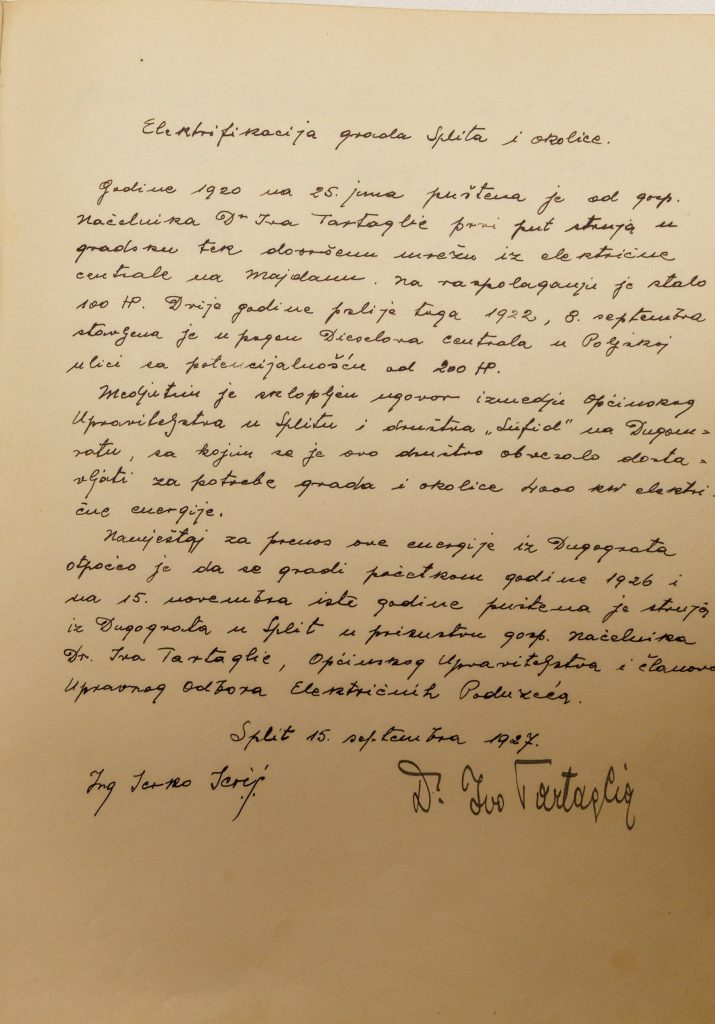 Elektrifikacija grada Splita i okolice.
Godine 1920 na 25. juna puštena je od gosp.
Načelnika Dr Iva Tartaglie prvi put struja u
gradsku tek dovršenu mrežu iz električne
centrale na Majdanu. Na raspolaganju je stalo
100 HP. Dvije godine poslije toga 1922, 8. septembra
stavljena je u pogon Dieselova centrala u Poljskoj
ulici sa potencijalnošću od 200 HP.
Medjutim je sklopljen ugovor izmedju Općinskog
Upraviteljstva u Splitu i društva „Sufid" na Dugom-
ratu, sa kojim se je ovo društvo obvezalo dosta-
vljati za potrebe grada i okolice 4000 kW elektri-
čne energije.
Namještaj za prenos ove energije iz Dugograta
otpočeo je da se gradi početkom godine 1926 i
na 15. novembra iste godine puštena je struja
iz Dugograta u Split u prisustvu gosp. Načelnika
Dr. Iva Tartaglie, Općinskog Upraviteljstva i članova
Upravnog Odbora Električnih Poduzeća.
Split 15. septembra 1927.
Ing
Dr. Ivo Tartaglia